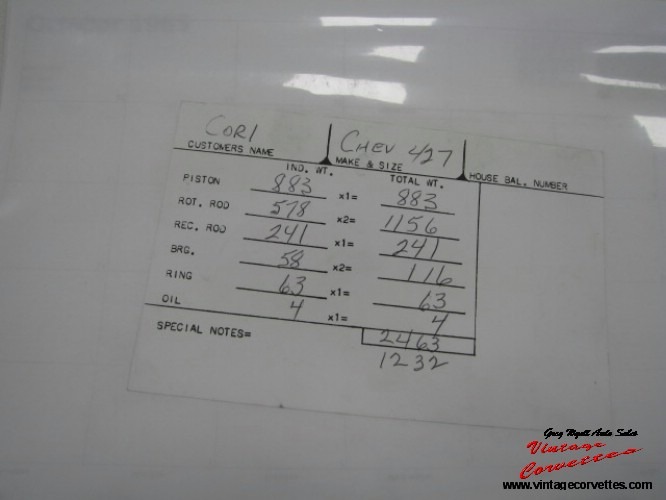 CORI
CUSTOMERS NAME
CHEV 427
MAKE & SIZE
HOUSE BAL. NUMBER
IND. WT.
TOTAL WT.
PISTON 883 x1= 883
ROT. ROD 578 x2= 1156
REC. ROD 241 x1= 241
BRG. 58 x2= 116
RING 63 x1= 63
OIL 4 x1= 4
2463
SPECIAL NOTES=
1232
Greg Wyatt Auto Sales
Vintage
Corvettes
www.vintagecorvettes.com